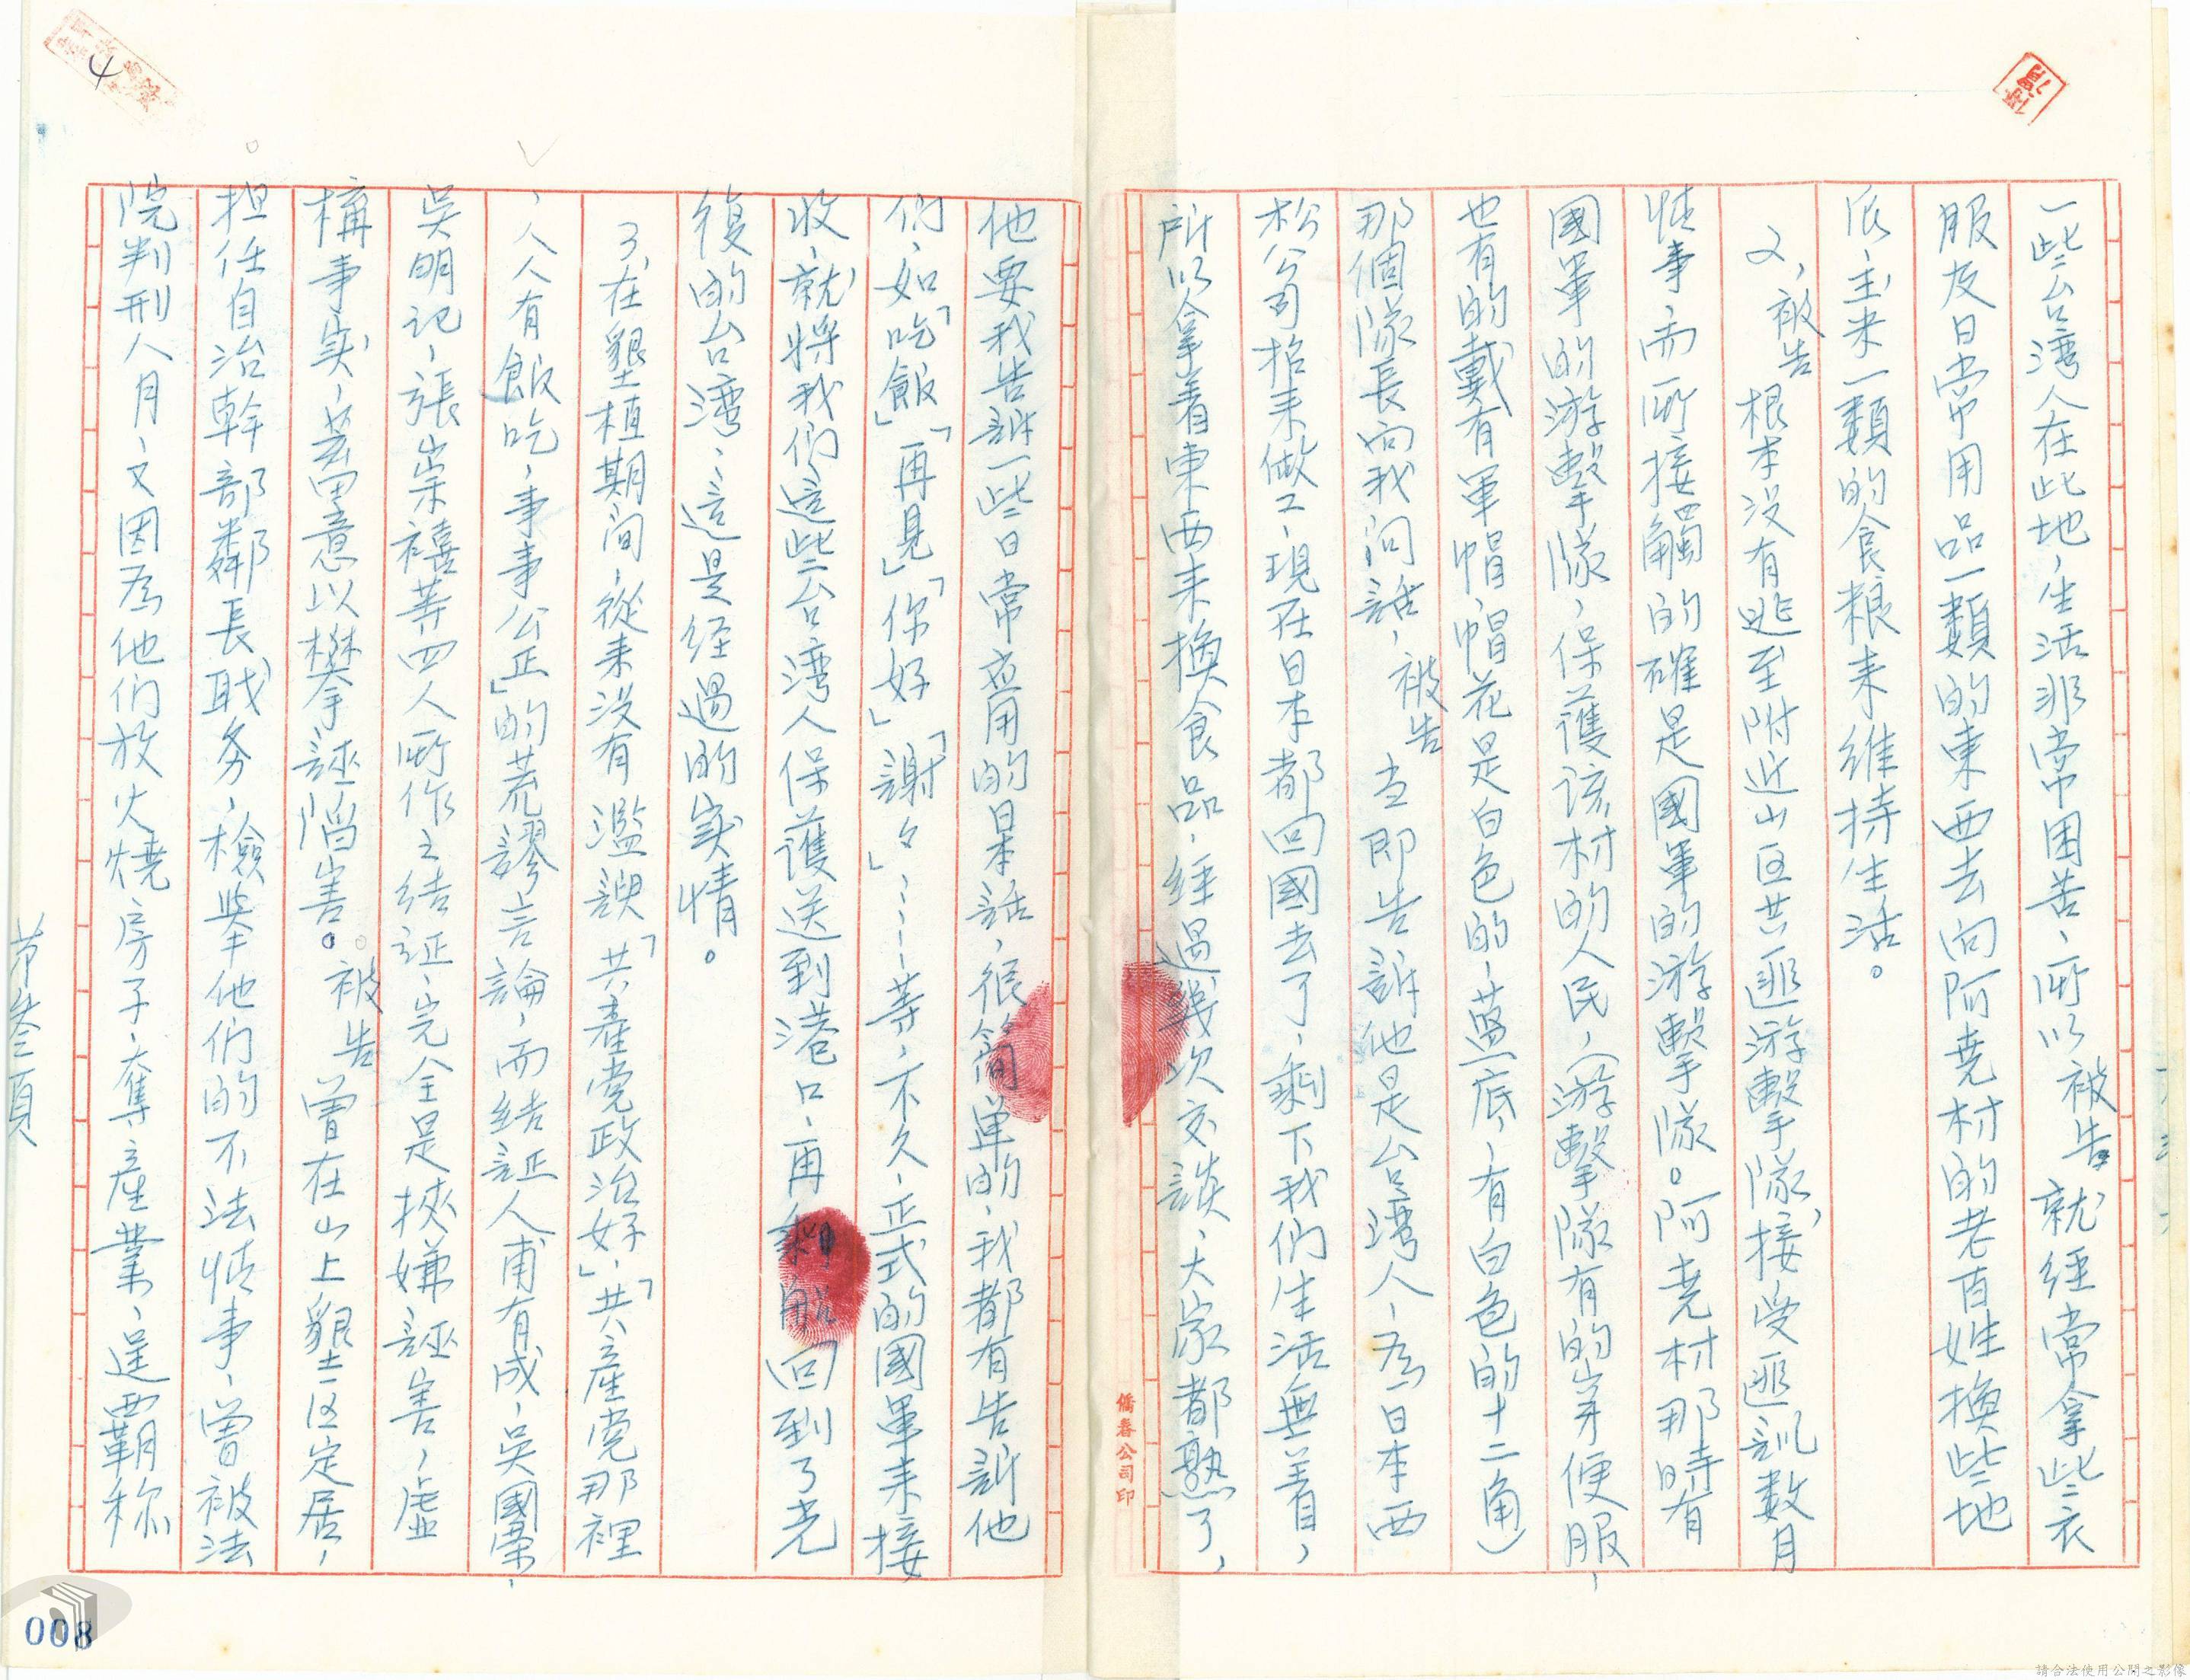 一些台湾人在此地，生活非常困苦，所以被告就經常拿些衣
服及日常用品一類的東西去向阿堯村的老百姓換些地
瓜、玉米一類的食粮来維持生活。
2，被告根本没有逃至附近山区共匪游擊隊，接受匪訓数月
情事，而所接觸的確是國軍的游擊隊。阿堯村那時有
國軍的游擊隊，保護該村的人民，（游擊隊有的穿便服，
也有的戴有軍帽，帽花是白色的，藍底，有白色的十二角）
那個隊長向我問話，被告立即告訴他是台湾人，為日本西
松公司招来做工，現在日本都回國去了，剩下我们生活無着，
所以拿着東西来換食品，經過幾次交談，大家都熟了，
他要我告訴一些日常应用的日本話，很简单的，我都有告訴他
们，如「吃飯」「再見」「你好」「謝々」……等，不久，正式的國軍来接
收，就將我们這些台湾人保護送到港口，再乘船回到了光
復的台湾，這是经過的实情。
3，在墾植期间，從来没有濫謏「共產党政治好」，「共產党那裡
，人人有飯吃，事事公正」的荒謬言論，而结証人甫有成，吳國荣，
吳明记，張崇禧等四人所作之结証，完全是挾嫌誣害，虛
構事实，蓄意以攀誣陷害。被告曾在山上墾区定居，
担任自治幹部鄰長职务，檢举他们的不法情事，曾被法
院判刑八月，又因為他们放火燒房子，奪産業，逞覇称
第叁頁
僑春公司印
4
008
請合法使用公開之影像